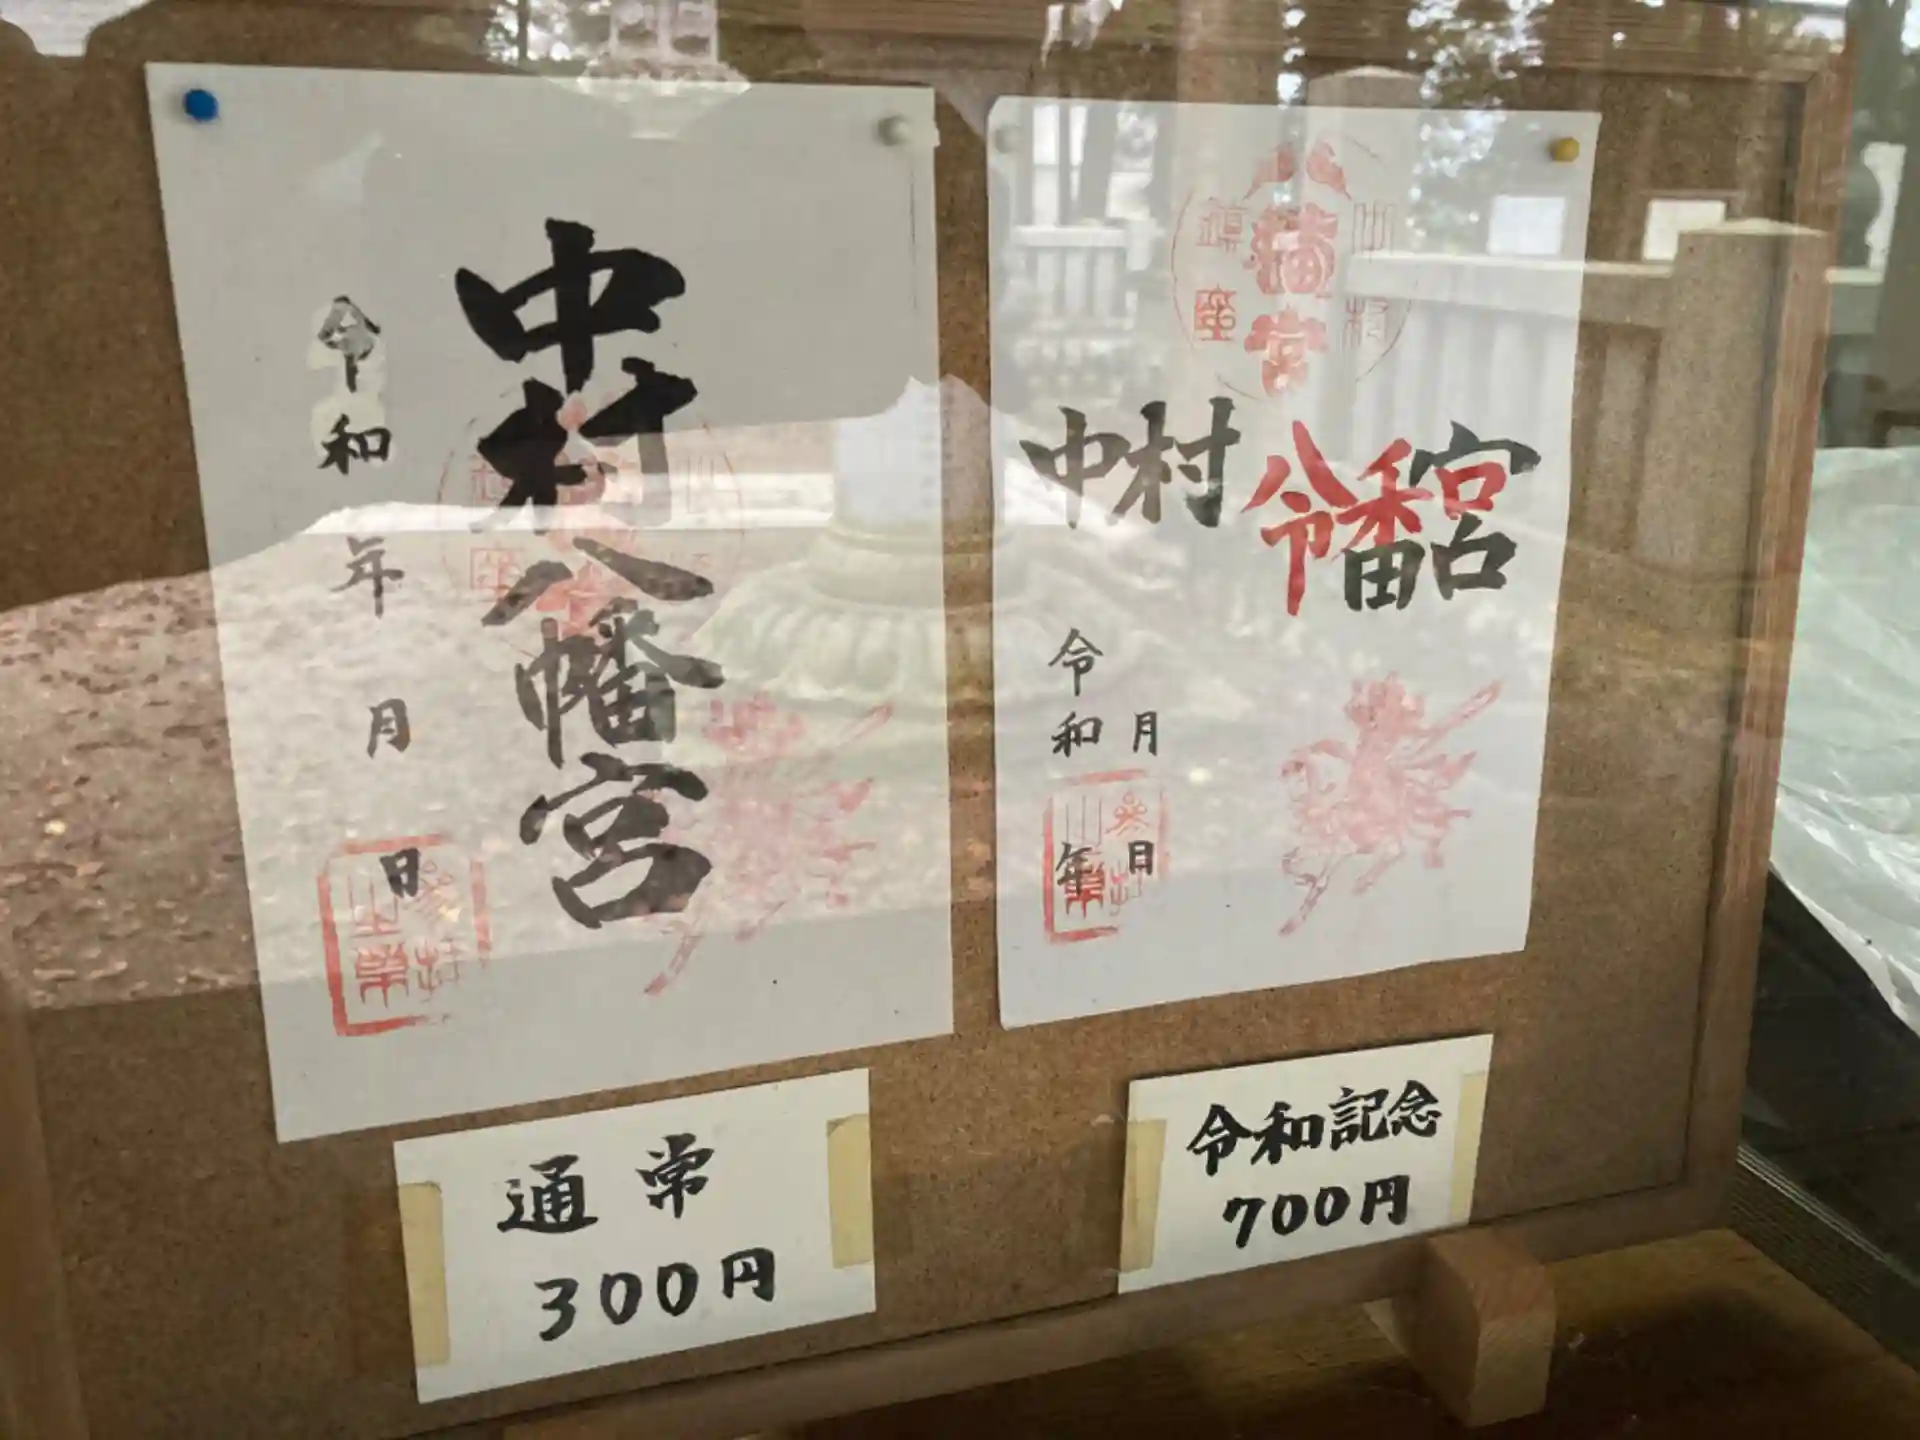 中村八幡宮
令和 年 月 日
八幡宮
中村
鎮座
中村 八幡宮
令和
令和 年
月 日
通常
300円
令和記念
700円